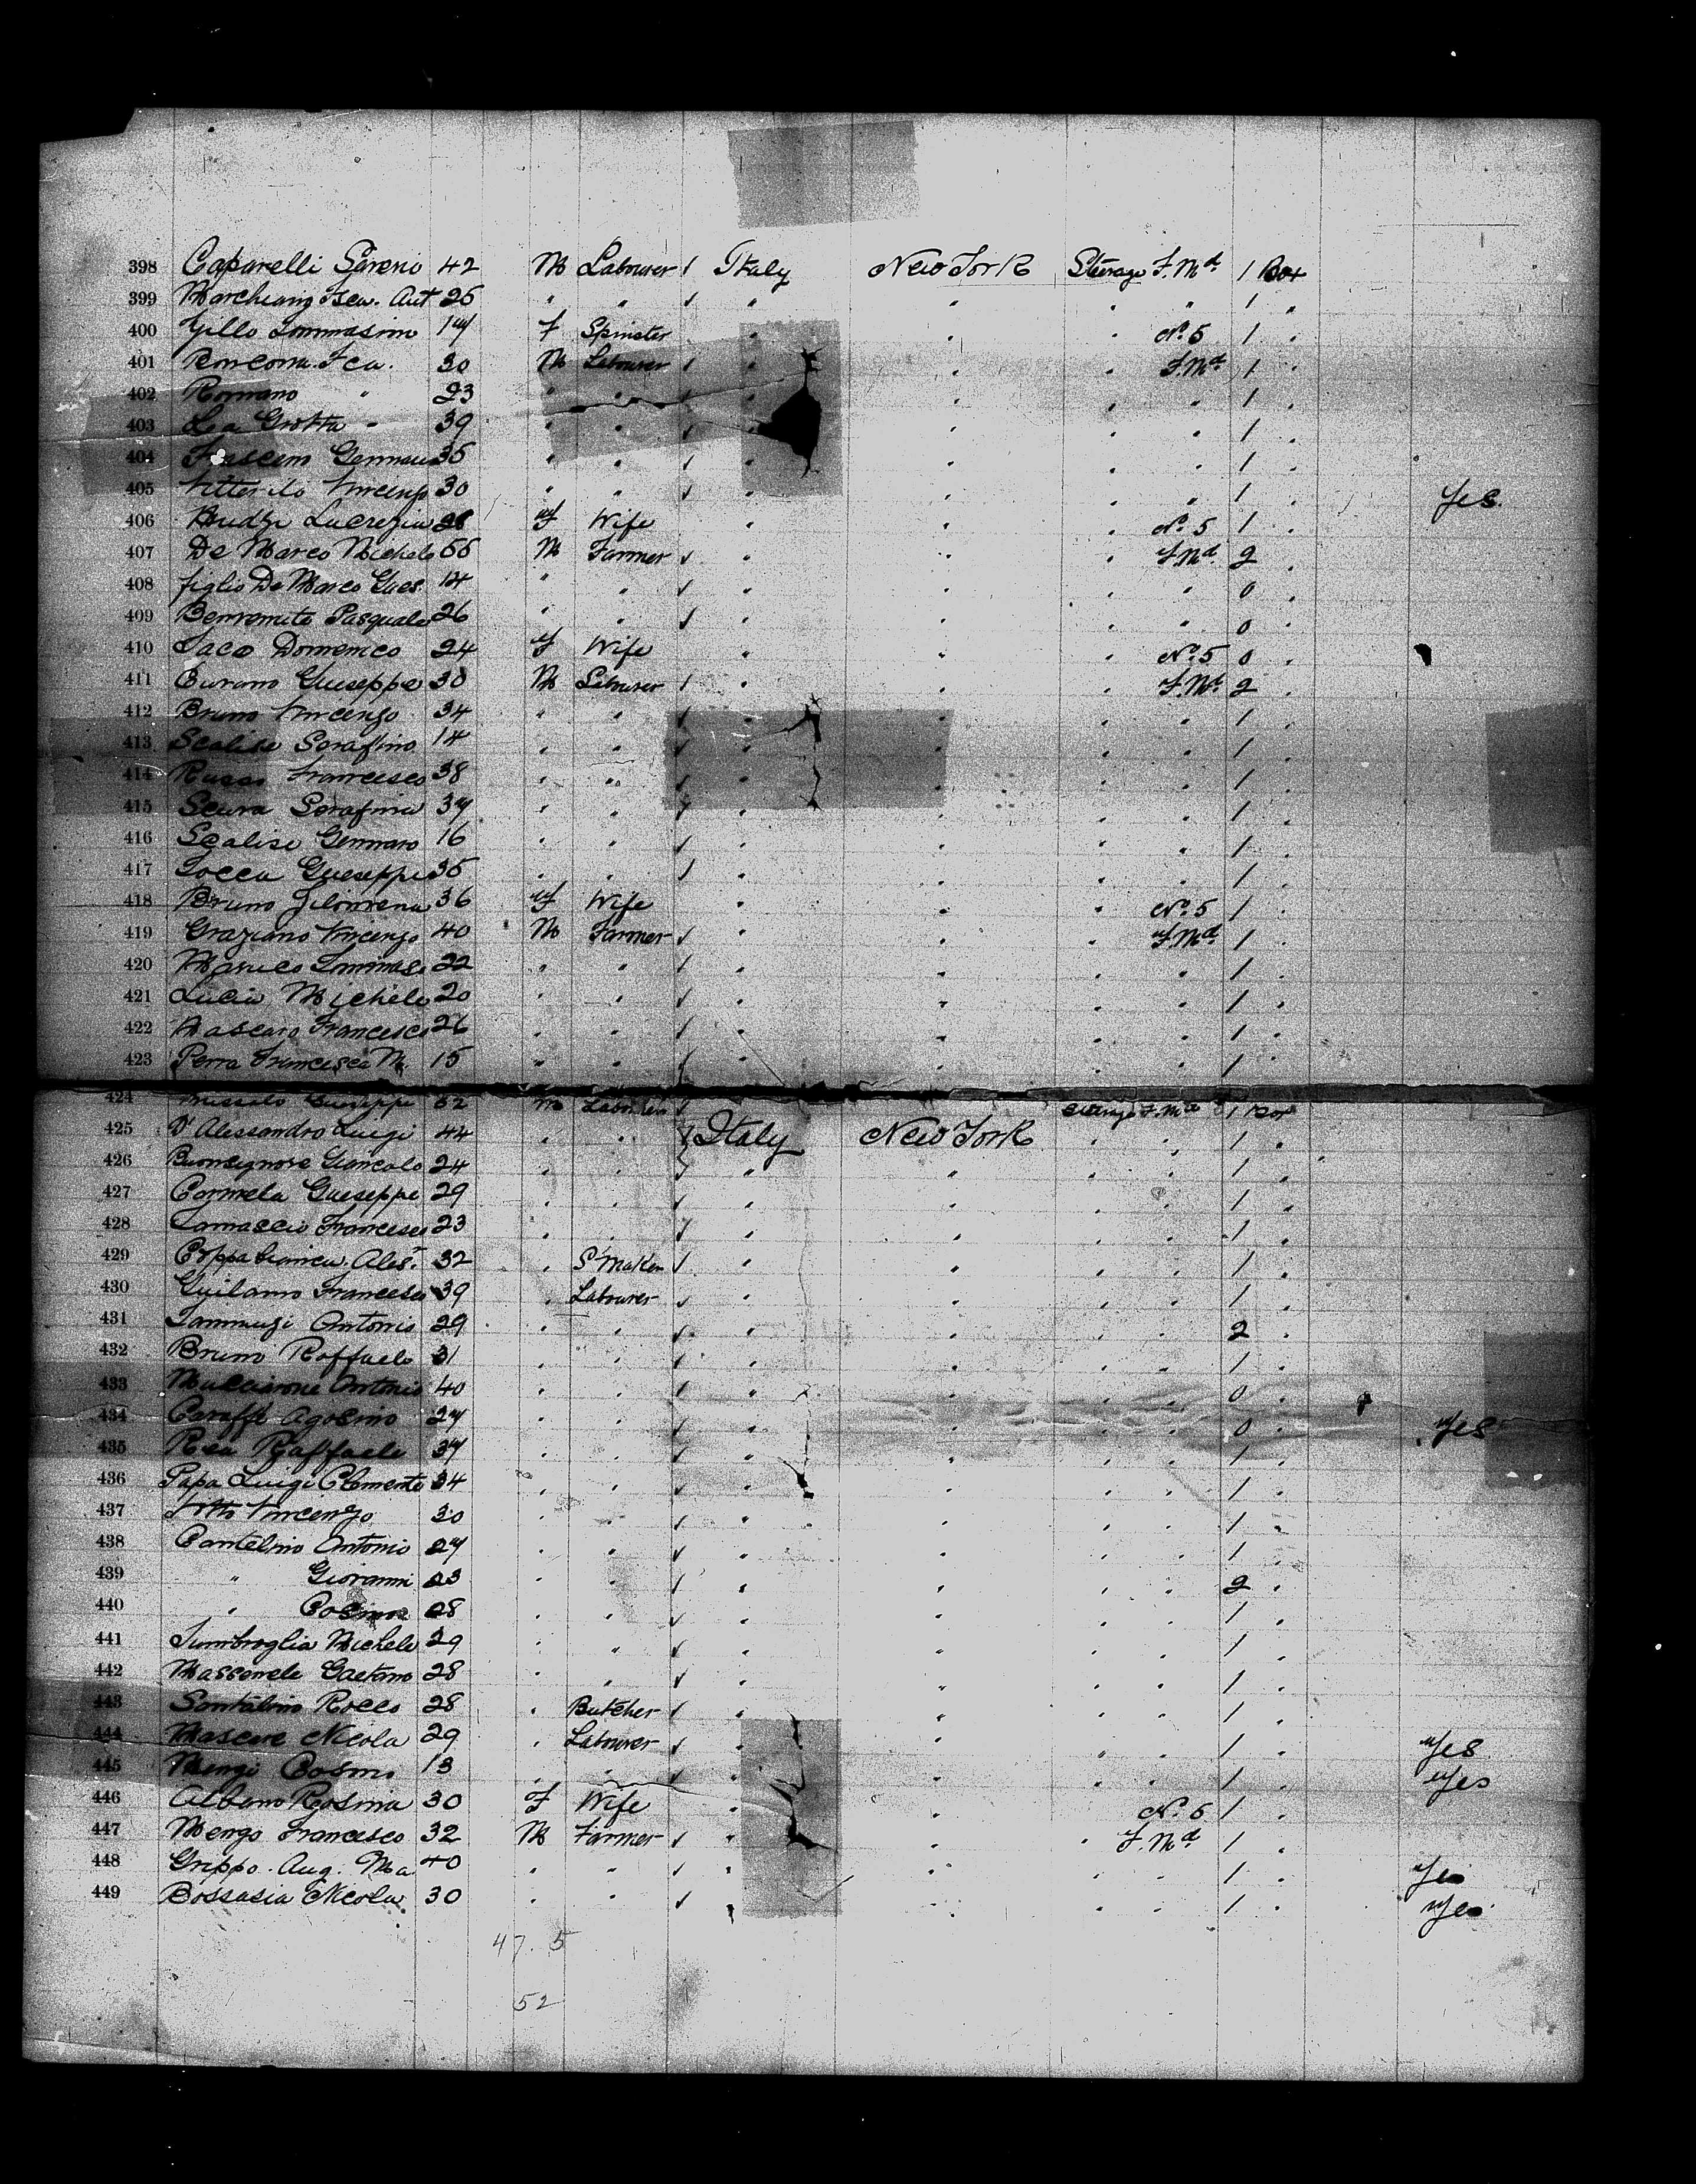 398 Caparelli Sareno 42 M Labourer / Italy New York Steerage F. Md. 1 Box
399 Marchiano Fsca. Ant 25 " " / " " " " 1 "
400 Gillo Tommasino 17 F Spinster " " " No. 5 1 "
401 Roncona. Fca. 30 M Labourer / " " " F. Md 1 "
402 Romano " 23 " " / " " " " 1 "
403 La Grotta " 39 " " / " " " 1 "
404 Gennaro 35 " " / " " " " 1 "
405 Vincenzo 30 " " / " " " " 1 " Yes.
406 Lucrezia 28 F Wife " " " No. 5 1 "
407 De Marco Michele 55 M Farmer / " " " F. Md. 2 "
408 figlio De Marco Gues. 14 " " / " " " " 0 "
409 Benvenuto Pasquale 26 " " / " " " " 0 "
410 Saco Domenico 24 F Wife " " " No. 5 0 "
411 Burano Gueseppe 30 M Labourer / " " " F. Md. 2 "
412 Bruno Vincenzo 34 " " / " " " " 1 "
413 Scalise Serafino 14 " " / " " " " 1 "
414 Russo Francesco 38 " " / " " " " 1 "
415 Scura Serafina 37 " " / " " " " 1 "
416 Scalise Gennaro 16 " " / " " " " 1 "
417 Tocca Gueseppe 35 " " / " " " " 1 "
418 Bruno Filomena 36 F Wife " " " No. 5 1 "
419 Graziano Vincenzo 40 M Farmer / " " " F. Md 1 "
420 Tommaso 22 " " / " " " " 1 "
421 Lucia Michele 20 " " / " " " " 1 "
422 Mascaro Francesco 26 " " / " " " " 1 "
423 Perra Francesca M. 15 " " / " " " " 1 "
424 Gueseppe 52 M Labourer / Steerage F. Md 1 Box
425 D'Alessandro Luigi 44 " " / Italy New York " " 1 "
426 Buonsignore Giancolo 24 " " / " " " " 1 "
427 Carmela Gueseppe 29 " " / " " " " 1 "
428 Lamascio Francesco 23 " " / " " " " 1 "
429 Coppa Ales. 32 " S'Maker / " " " " 1 "
430 Guilano Francesco 39 " Labourer / " " " " 1 "
431 Tammuzi Antonio 29 " " / " " " " 2 "
432 Bruno Raffaele 31 " " / " " " " 1 "
433 Antonio 40 " " / " " " " 0 "
434 Caraffe Agosino 27 " " / " " " " 0 " Yes
435 Rea Raffaele 37 " " / " " " " 1 "
436 Papa Luigi Clemente 34 " " / " " " " 1 "
437 Vincenzo 30 " " / " " " " 1 "
438 Cantelino Antonio 27 " " / " " " " 1 "
439 " Giovanni 23 " " / " " " " 2 "
440 " Cosimo 28 " " / " " " " 1 "
441 Sumbroglia Michele 29 " " / " " " " 1 "
442 Massenele Gaetano 28 " " / " " " " 1 "
443 Santalino Rocco 28 " Butcher / " " " " 1 "
444 Mascare Nicola 29 " Labourer / " " " " 1 " Yes
445 Mengi Cosmo 13 " " / " " " " 1 " Yes
446 Albano Rosina 30 F Wife " " No. 5 1 "
447 Mengo Francesco 32 M Farmer / " " " F. Md 1 "
448 Greppo. Aug. Ma 40 " " / " " " " 1 " Yes
449 Bossasia Nicola 30 " " / " " " " 1 " Yes
47. 5
52